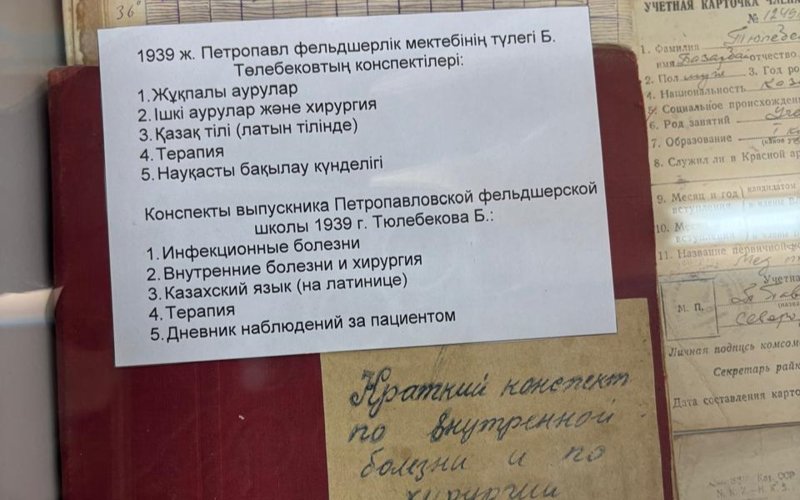 36°
1939 ж. Петропавл фельдшерлік мектебінің түлегі Б.
Төлебековтың конспектілері:
1. Жұқпалы аурулар
2. Ішкі аурулар және хирургия
3. Қазақ тілі (латын тілінде)
4. Терапия
5. Науқасты бақылау күнделігі
Конспекты выпускника Петропавловской фельдшерской
школы 1939 г. Тюлебекова Б.:
1. Инфекционные болезни
2. Внутренние болезни и хирургия
3. Казахский язык (на латинице)
4. Терапия
5. Дневник наблюдений за пациентом
Краткий конспект
по внутренной
болезни и по
хирургии
УЧЕТНАЯ КАРТОЧКА ЧЛЕНА
№
1. Фамилия
имя отчество
2. Пол муж 3. Год ро
4. Национальность Каз
5. Социальное происхожден
6. Род занятий
7. Образование
8. Служил ли в Красной ар
9. Месяц и год кандидатом
вступления
10.
вступления
11. Название первичной
Учетна
М. П.
Личная подпись комсом
Секретарь райк
Дата составления карто